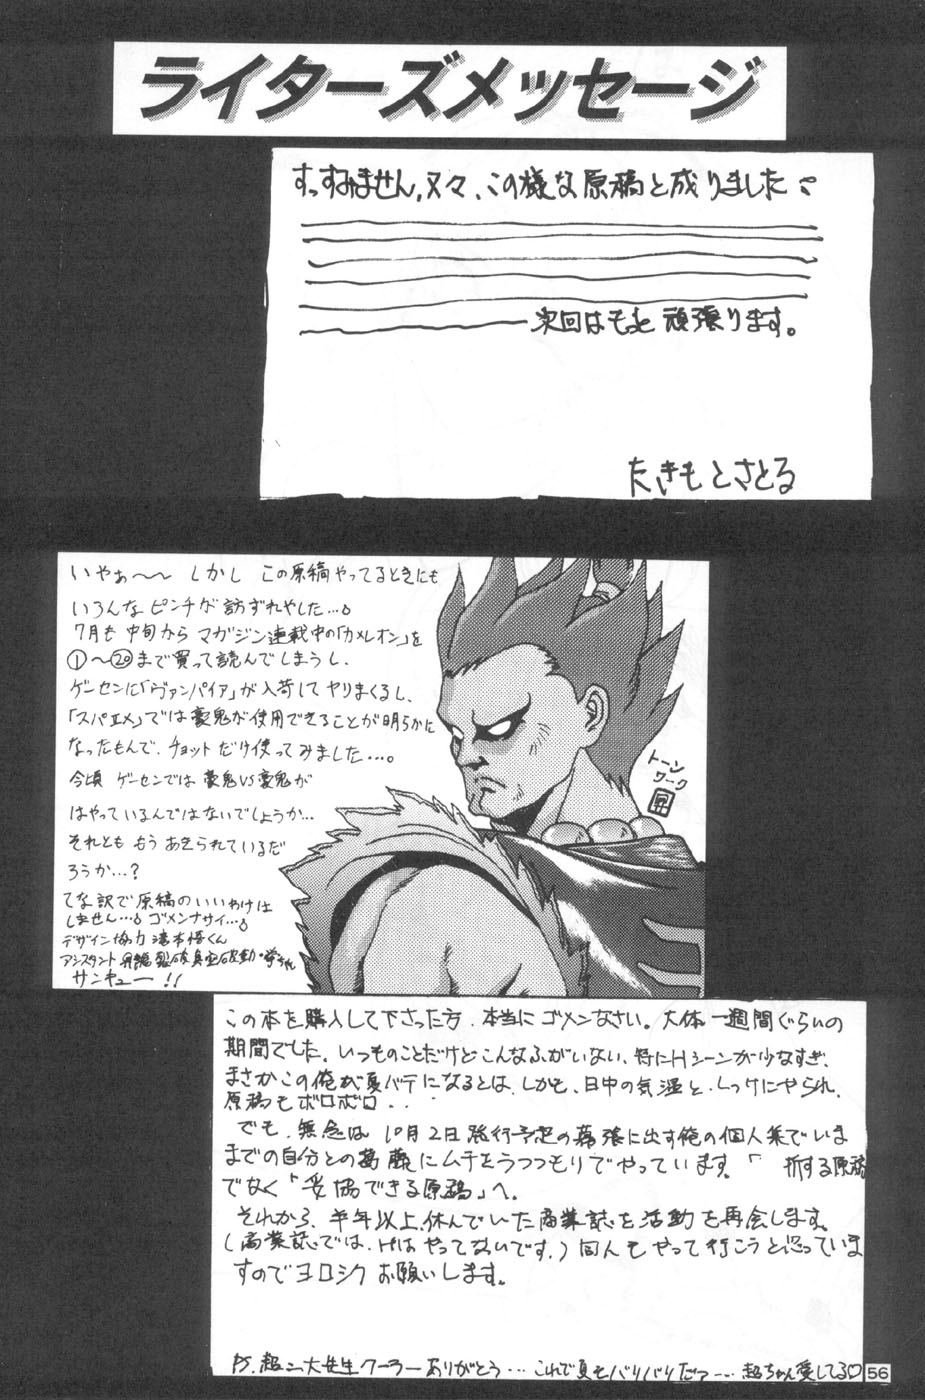 ライターズメッセージ
すっすみません、又々、この様な原稿と成りました
次回はもっと頑張ります。
たきもとさとる
いやぁ〜〜 しかし この原稿やってるときにも
いろんなピンチが訪ずれやした…。
7月も中旬から マガジン連載中の「カメレオン」を
①〜⑳まで買って読んでしまうし、
ゲーセンに「ヴァンパイア」が入荷してヤリまくるし、
「スパⅡX」では豪鬼が使用できることが明らかに
なったもんで、チョットだけ使ってみました…。
今頃 ゲーセンでは 豪鬼VS豪鬼が
はやっているんではないでしょうか…
それとも もう あきられているだ
ろうか…?
てな訳で原稿のいいわけは
しません…。ゴメンナサイ…。
デザイン協力 滝本悟くん
アシスタント
サンキュー!!
トーン
ワーク
昇
この本を購入して下さった方、本当にゴメンなさい。大体一週間ぐらいの
期間でした。いつものことだけどこんなふがいない、特にHシーンが少なすぎ、
まさかこの俺が夏バテになるとは、しかも、日中の気温と、しっけにやられ、
原稿もボロボロ・・
でも、無念は 10月2日発行予定の幕張に出す俺の個人集でいま
までの自分との葛藤にムチをうつつもりでやっています。「 折する原稿
でなく「妥協できる原稿」へ。
それから、半年以上、休んでいた商業誌を活動を再会します。
(商業誌では、Hはやってないです。) 同人もやって行こうと思っていま
すのでヨロシクお願いします。
P.S. 超二大先生クーラーありがとう… これで夏もバリバリだァー… 超ちゃん愛してる♡
56